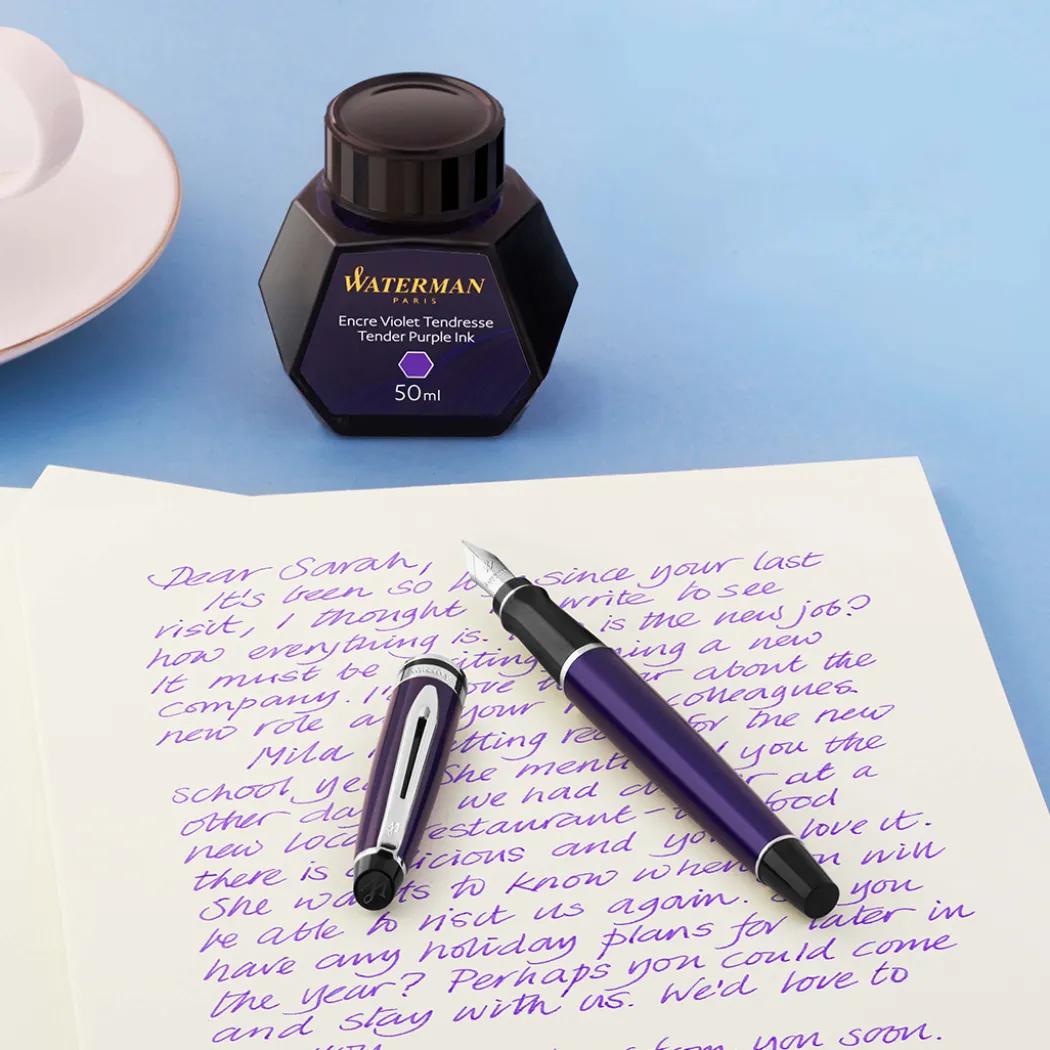 WATERMAN
PARIS
Encre Violet Tendresse
Tender Purple Ink
50ml
Dear Sarah,
It's been so since your last
visit, I thought write to see
how everything is. is the new job?
It must be a new
company. about the
new role your colleagues
Mila for the new
school She you the
other day we had at a
new restaurant - food
there is and love it.
She to know when will
be able to visit us again. you
have any holiday plans for later in
the year? Perhaps you could come
and stay with us. We'd love to
from you soon.